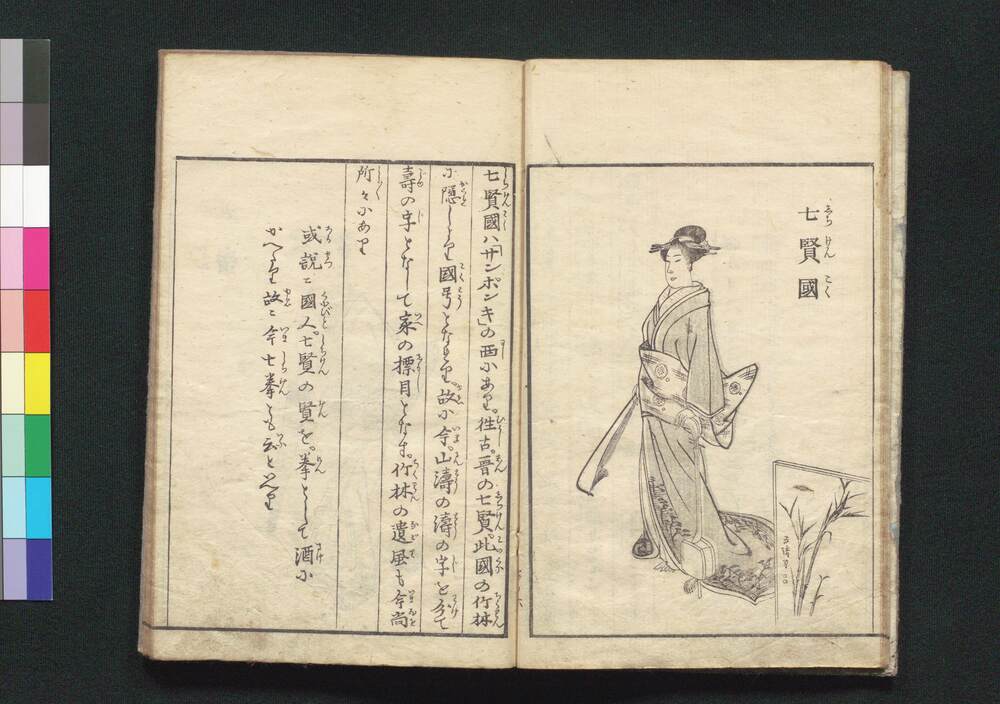 七賢國
しちけんこく
七賢國ハ「サンポンキ」の西にあり。徃古。晋の七賢。此國の竹林
に隠しより國号となれり。故に今。山濤の濤の字を分て
壽の字となして家の摽目となす。竹林の遺風も今尚
所々にあり
或説ニ國人。七賢の賢を。拳として酒に
かへたり故ニ今七拳とも云といへり